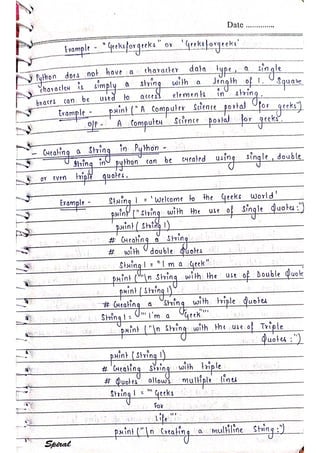 Date ..............
Example - "Geeksforgeeks" or 'Geeksforgeeks'
Python does not have a character data type, a single
character is simply a string with a length of 1. Square
braces can be used to access elements in string.
Example - print ("A Computer Science portal for geeks")
O/P - A Computer Science portal for geeks.
Creating a String in Python -
String in python can be created using single, double
or even triple quotes.
Example - String 1 = 'Welcome to the Geeks World'
print ("String with the use of Single Quotes:")
print (String 1)
# Creating a String
# with double Quotes
String 1 = "I'm a Geek"
print ("\n String with the use of Double Quote
print (String 1)
# Creating a String with triple Quotes
String 1 = '''I'm a Geek'''
print ("\n String with the use of Triple
Quotes :")
print (String 1)
# Creating String with triple
# Quotes allows multiple lines
String 1 = '''Geeks
For
Life'''
print ("\n Creating a multiline String:")
Spiral